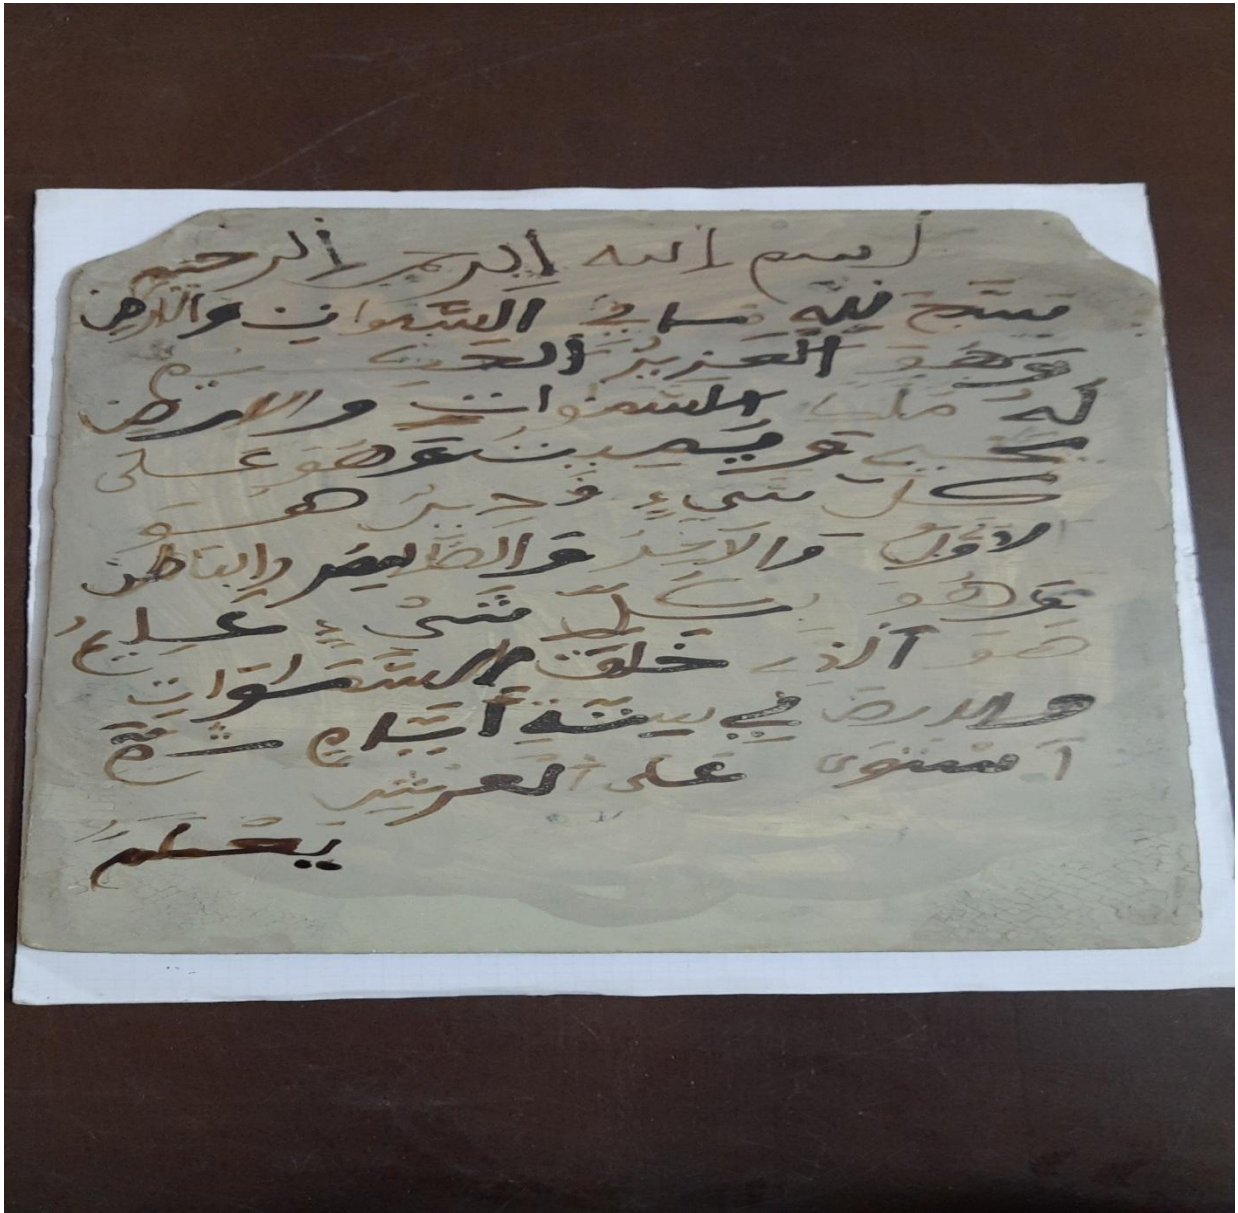 بسم الله الرحمن الرحيم
سَبَّحَ لِلَّهِ مَا فِي السَّمَوَاتِ وَالارض
وَهُوَ الْعَزِيزُ الحكيم
لَهُ مُلك السَّمَوَاتِ والارض
يحيي وَيُميت وَهُوَ عَلَى
كل شَيْءٍ قَدِيرٌ هُوَ
الاوَّلُ وَالاخِرُ وَالظَّاهِر والباطن
وَهُوَ بِكُلِّ شَيْءٍ عَلِيمٌ
هُوَ الَّذِي خَلَقَ السَّمَوَاتِ
والارض فِي سِتَّةِ أَيَّامٍ ثُمَّ
اسْتَوَى عَلَى الْعَرْشِ
يَعْلَمُ